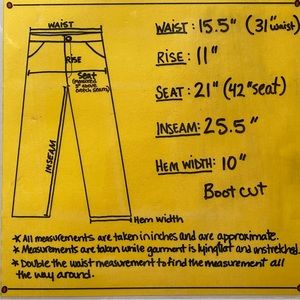 WAIST
WAIST: 15.5" (31" waist)
RISE
RISE: 11"
Seat
(measured
3" above
crotch seam)
SEAT: 21" (42" seat)
INSEAM
INSEAM: 25.5"
HEM WIDTH: 10"
Boot cut
Hem Width
* All measurements are taken in inches and are approximate.
* Measurements are taken while garment is lying flat and unstretched.
* Double the waist measurement to find the measurement all
the way around.